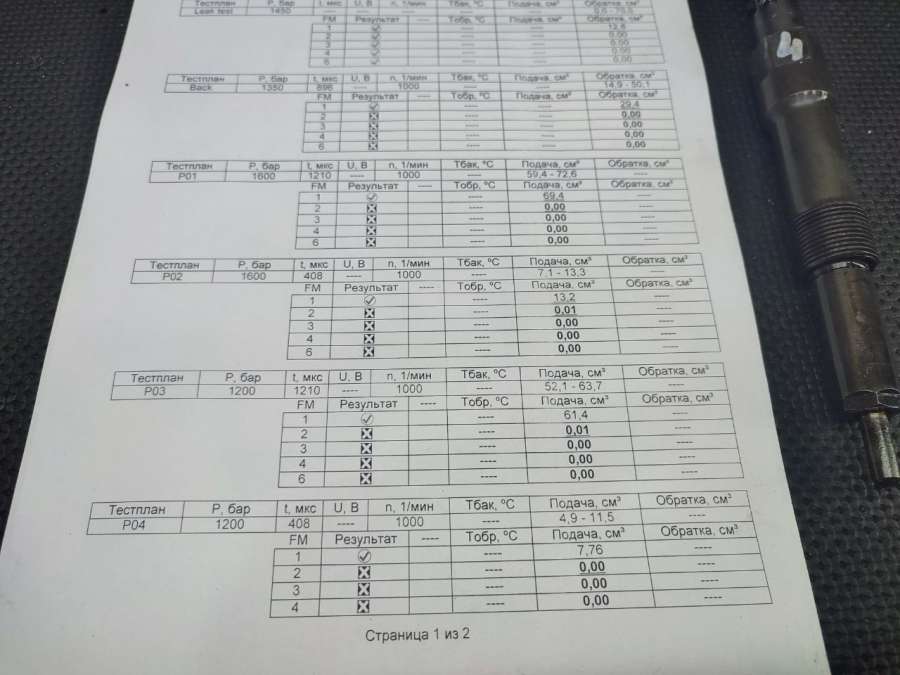 Тестплан P, бар t, мкс U, В n, 1/мин Тбак, ºС Подача, см³ Обратка, см³
Leak test 1450 ---- ---- ---- ---- ----
FM Результат ---- Тобр, ºС Подача, см³ Обратка, см³
1 ---- ---- 12,6
2 ---- ---- 0,00
3 ---- ---- 0,00
4 ---- ---- 0,00
6 ---- ---- 0,00
Тестплан P, бар t, мкс U, В n, 1/мин Тбак, ºС Подача, см³ Обратка, см³
Back 1350 898 ---- 1000 ---- ---- 14,9 - 50,1
FM Результат ---- Тобр, ºС Подача, см³ Обратка, см³
1 ---- ---- 29,4
2 ---- ---- 0,00
3 ---- ---- 0,00
4 ---- ---- 0,00
6 ---- ---- 0,00
Тестплан P, бар t, мкс U, В n, 1/мин Тбак, ºС Подача, см³ Обратка, см³
P01 1600 1210 ---- 1000 ---- 59,4 - 72,6 ----
FM Результат ---- Тобр, ºС Подача, см³ Обратка, см³
1 ---- 69,4 ----
2 ---- 0,00 ----
3 ---- 0,00 ----
4 ---- 0,00 ----
6 ---- 0,00 ----
Тестплан P, бар t, мкс U, В n, 1/мин Тбак, ºС Подача, см³ Обратка, см³
P02 1600 408 ---- 1000 ---- 7,1 - 13,3 ----
FM Результат ---- Тобр, ºС Подача, см³ Обратка, см³
1 ---- 13,2 ----
2 ---- 0,01 ----
3 ---- 0,00 ----
4 ---- 0,00 ----
6 ---- 0,00 ----
Тестплан P, бар t, мкс U, В n, 1/мин Тбак, ºС Подача, см³ Обратка, см³
P03 1200 1210 ---- 1000 ---- 52,1 - 63,7 ----
FM Результат ---- Тобр, ºС Подача, см³ Обратка, см³
1 ---- 61,4 ----
2 ---- 0,01 ----
3 ---- 0,00 ----
4 ---- 0,00 ----
6 ---- 0,00 ----
Тестплан P, бар t, мкс U, В n, 1/мин Тбак, ºС Подача, см³ Обратка, см³
P04 1200 408 ---- 1000 ---- 4,9 - 11,5 ----
FM Результат ---- Тобр, ºС Подача, см³ Обратка, см³
1 ---- 7,76 ----
2 ---- 0,00 ----
3 ---- 0,00 ----
4 ---- 0,00 ----
Страница 1 из 2